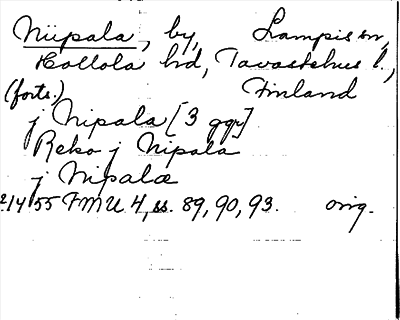 Niipala, by, Lampis sn,
Hollola hd, Tavastehus l.,
(forts.) Finland
j Nipala [3 ggr]
Reko j Nipala
j Nipalæ
2/4 1455 FMU 4, ss. 89, 90, 93. orig.